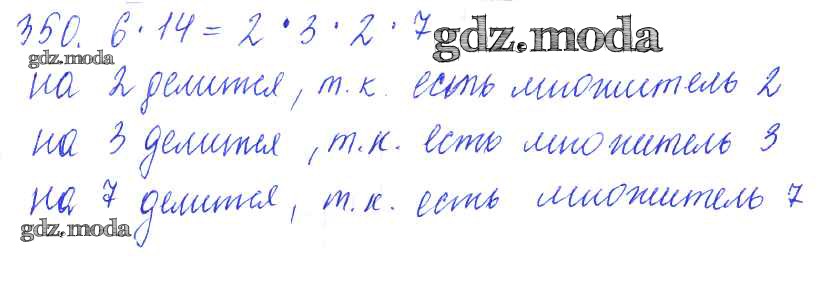 350. 6 · 14 = 2 · 3 · 2 · 7
gdz.moda
gdz.moda
на 2 делится, т.к. есть множитель 2
на 3 делится, т.к. есть множитель 3
на 7 делится, т.к. есть множитель 7
gdz.moda